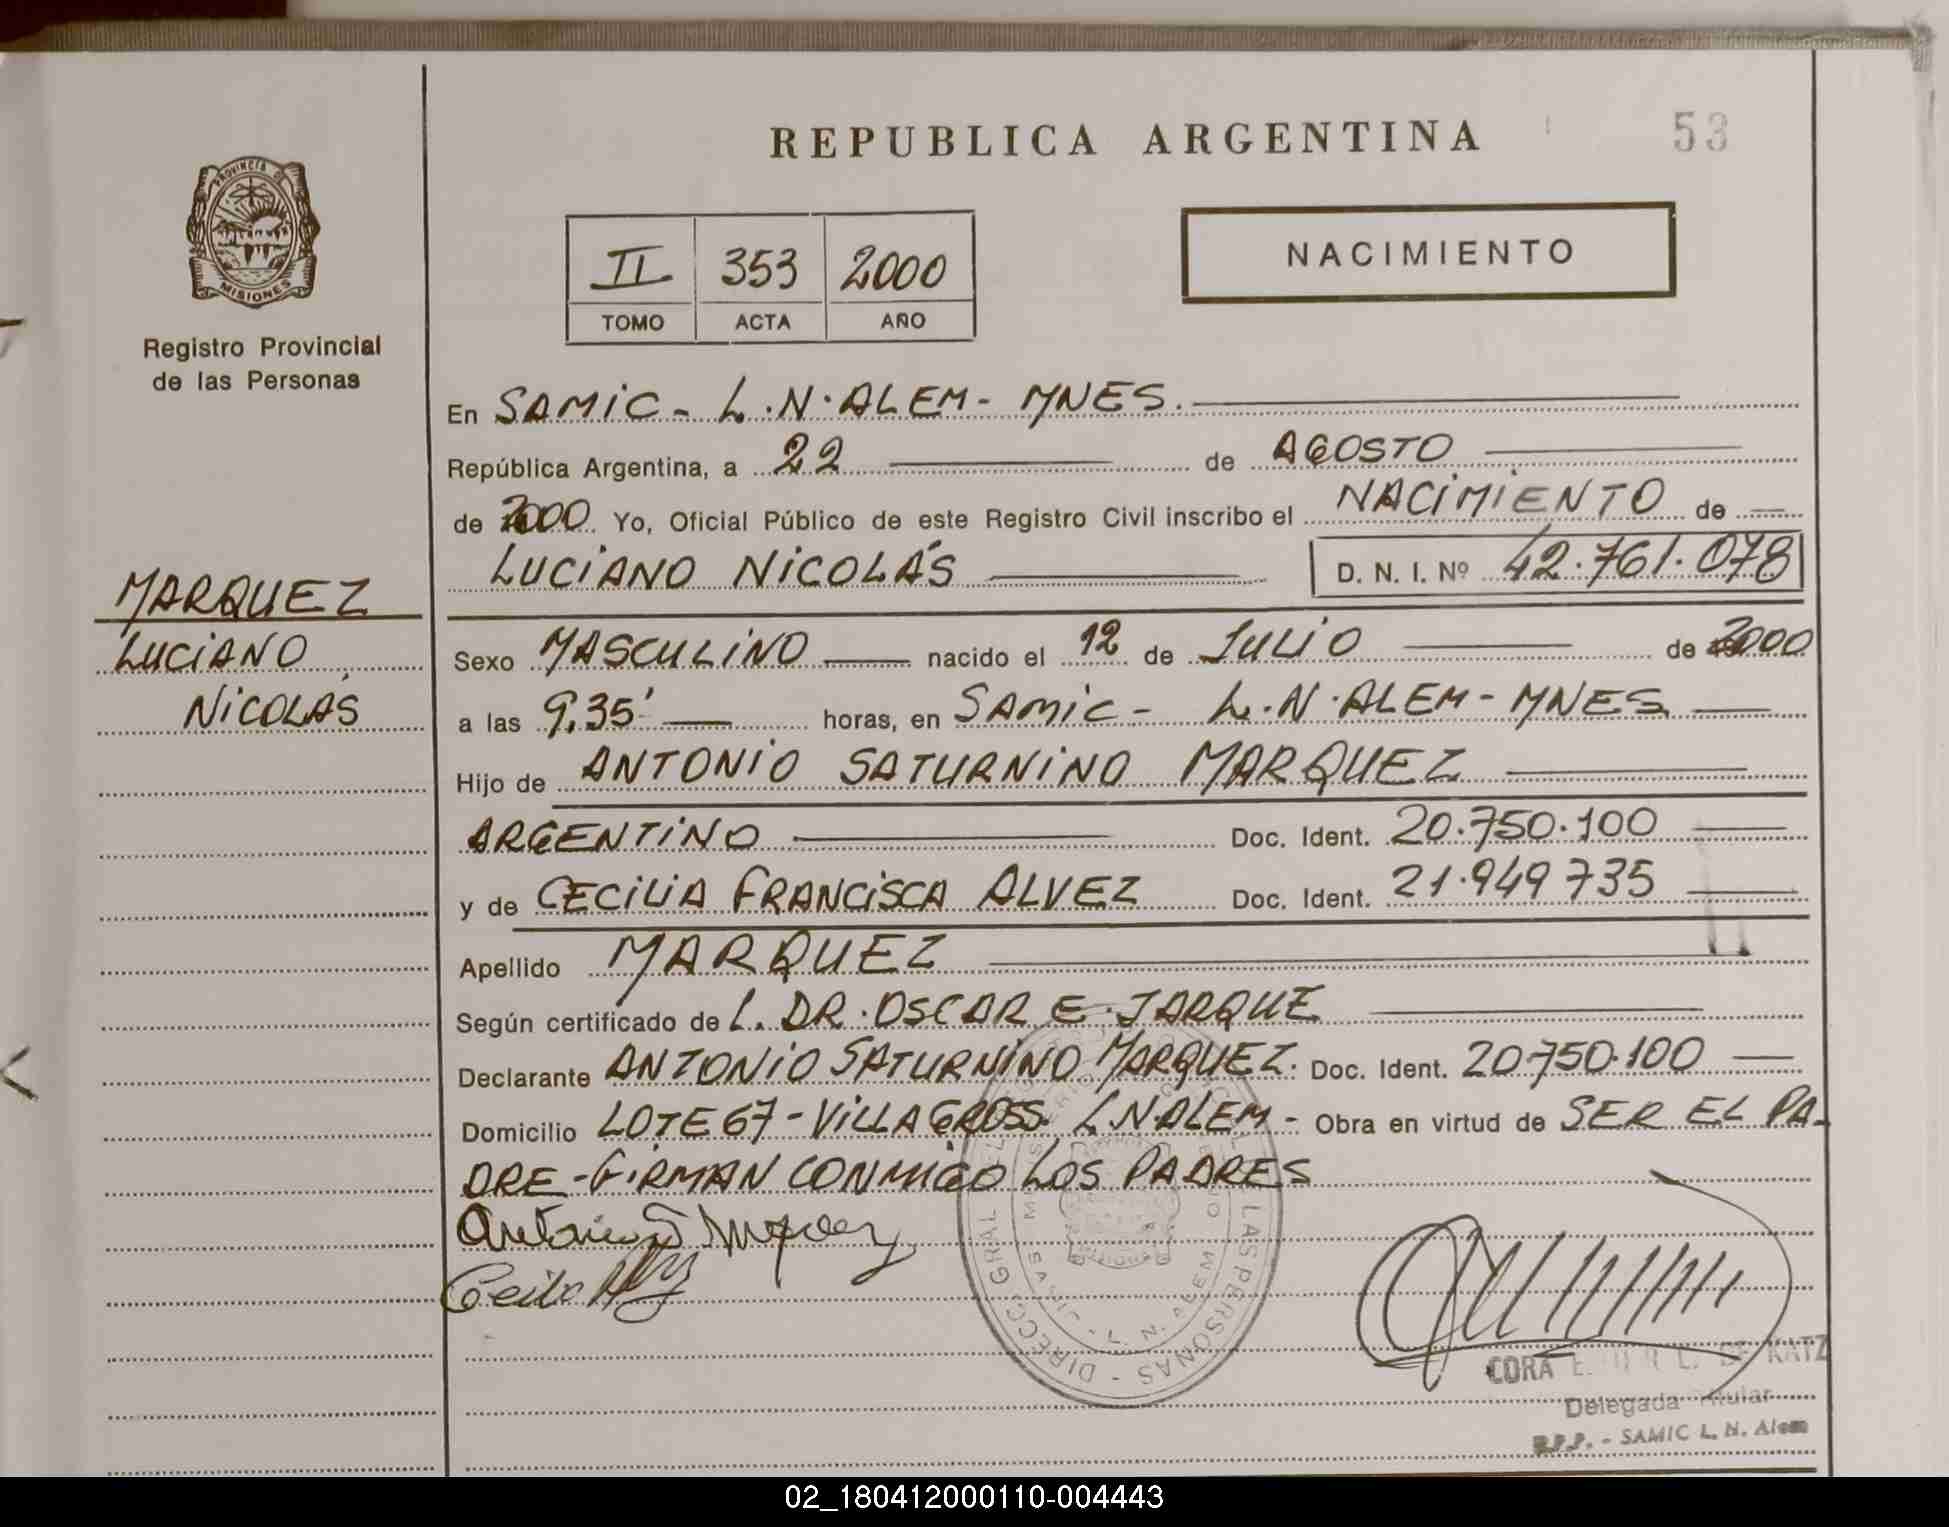 REPUBLICA ARGENTINA
53
PROVINCIA DE
MISIONES
Registro Provincial
de las Personas
II 353 2000
TOMO ACTA AÑO
NACIMIENTO
En SAMIC - L.N.ALEM - MNES.
República Argentina, a 22 de AGOSTO
de 2000 Yo, Oficial Público de este Registro Civil inscribo el NACIMIENTO de
LUCIANO NICOLÁS D. N. I. Nº 42.761.078
MARQUEZ
LUCIANO
NICOLÁS
Sexo MASCULINO nacido el 12 de JULIO de 2000
a las 9,35' horas, en SAMIC - L.N.ALEM - MNES
Hijo de ANTONIO SATURNINO MARQUEZ
ARGENTINO Doc. Ident. 20.750.100
y de CECILIA FRANCISCA ALVEZ Doc. Ident. 21.949 735
Apellido MARQUEZ
Según certificado de L. DR. OSCAR E. JARQUE
Declarante ANTONIO SATURNINO MARQUEZ. Doc. Ident. 20750.100
Domicilio LOTE 67 - VILLA GROSS. L.N.ALEM - Obra en virtud de SER EL PA-
DRE - FIRMAN CONMIGO LOS PADRES
DIRECC. GRAL. DEL LAS PERSONAS
L. N. ALEM
CORA L. DE KATZ
Delegada Titular
R.P.P. - SAMIC L. N. Alem
02_180412000110-004443